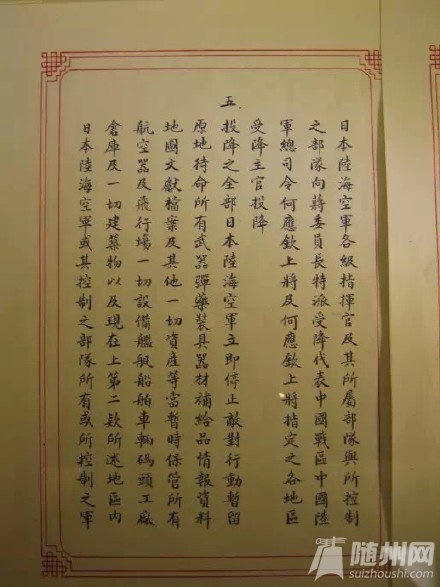 日本陸海空軍各級指揮官及其所屬部隊與所控制
之部隊向蔣委員長特派受降代表中國戰區中國陸
軍總司令何應欽上將及何應欽上將指定之各地區
受降主官投降
五.
投降之全部日本陸海空軍立即停止敵對行動暫留
原地待命所有武器彈藥裝具器材補給品情報資料
地圖文獻檔案及其他一切資產等當暫時保管所有
航空器及飛行場一切設備艦艇船舶車輛碼頭工廠
倉庫及一切建築物以及現在上第二款所述地區內
日本陸海空軍或其控制之部隊所有或所控制之軍
随州网
suizhoushi.com